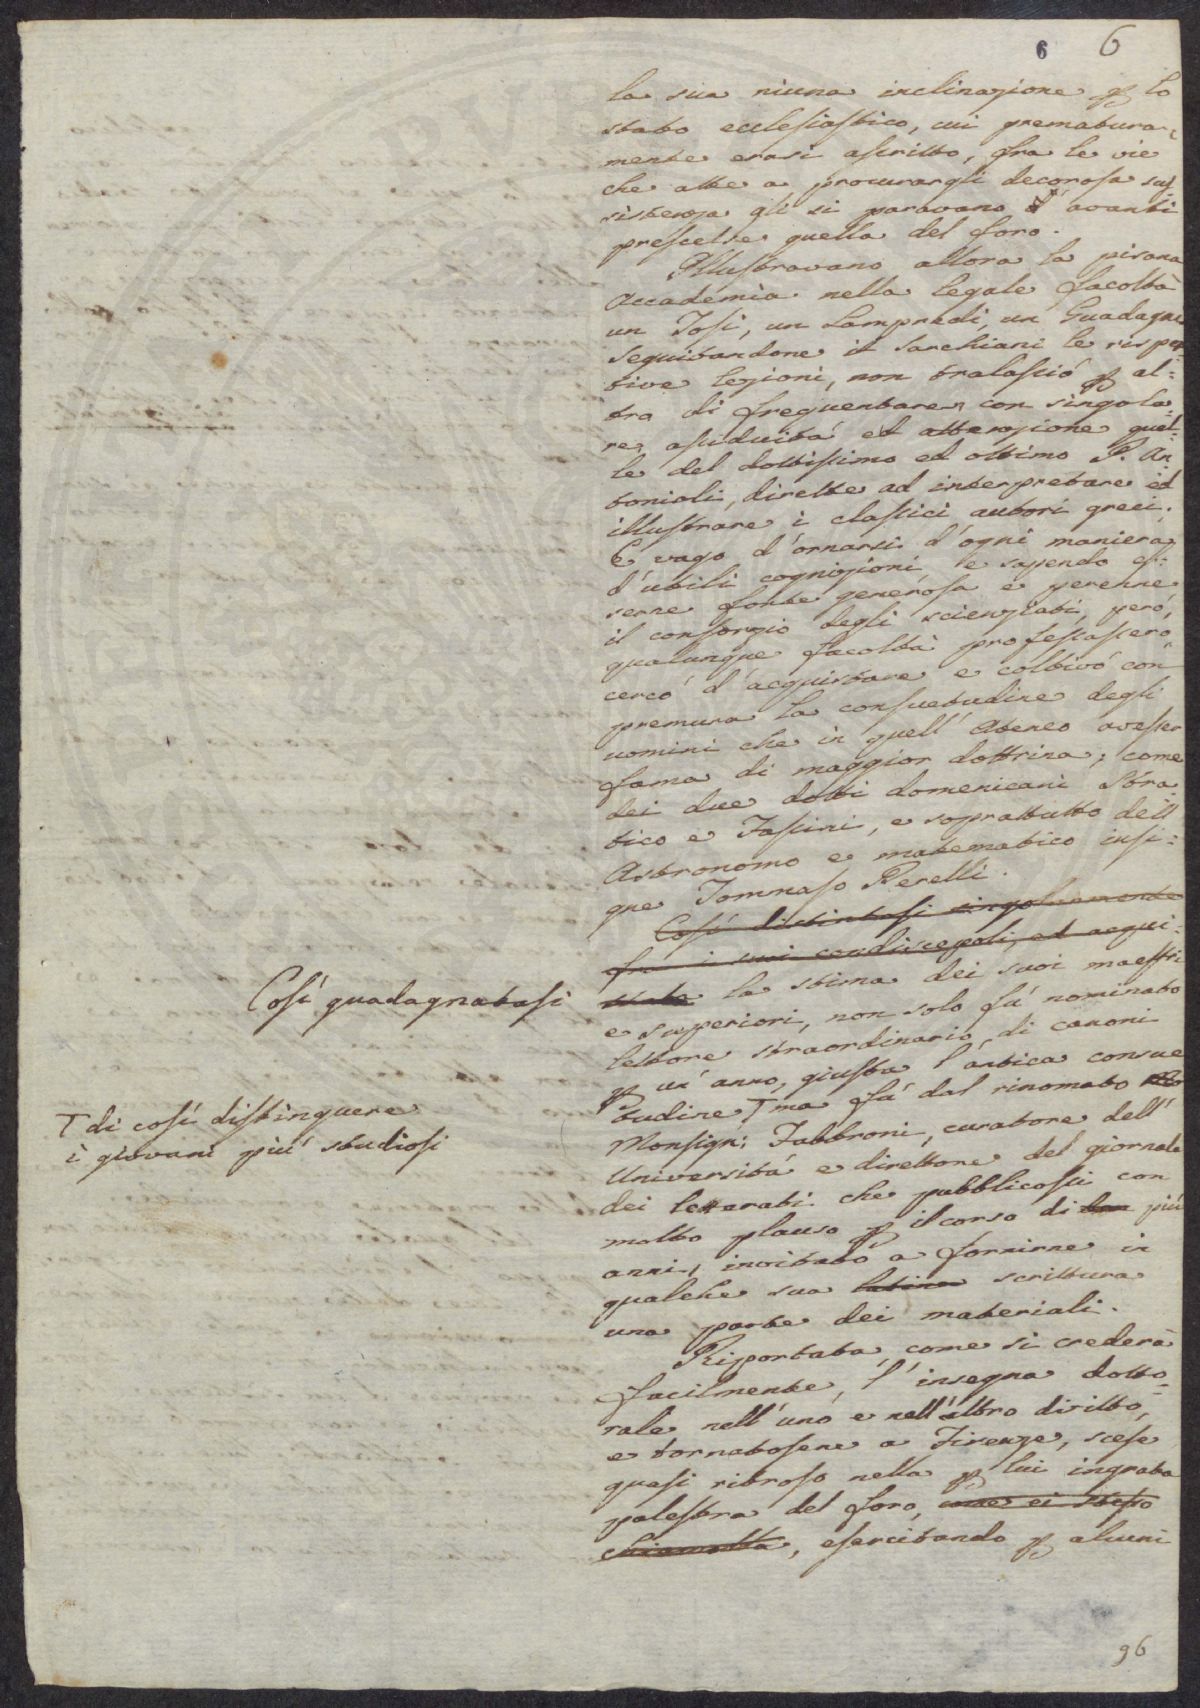 6 6
la sua niuna inclinazione p lo
stato ecclesiastico, cui prematura-
mente erasi ascritto, fra le vie
che atte a procurargli decorosa sus-
sistenza gli si paravano d'avanti
prescelse quella del foro.
Illustravano allora la pisana
Accademia nella legale facoltà
un Tosi, un Lampredi, un Guadagni
Seguitandone il Sarchiani le rispet-
tive lezioni, non tralasciò p al=
tra di frequentare con singola-
re assiduità ed attenzione quel-
le del dottissimo ed ottimo P. An-
tonioli, dirette ad interpretare ed
illustrare i classici autori greci.
E vago d'ornarsi d'ogni maniera
d'utili cognizioni e sapendo es=
serne fonte generosa e perenne
il consorzio degli scienziati, però,
qualunque facoltà professassero,
cercò d'acquistare e coltivò con
premura la consuetudine degli
uomini che in quell'Ateneo avesser
fama di maggior dottrina; come
dei due dotti domenicani Stra-
tico e Fassini, e soprattutto dell'
Astronomo e matematico insi=
gne Tommaso Perelli.
Così distintosi singolarmente
fra i suoi condiscepoli, ed acqui-
stata la stima dei suoi maestri
Così guadagnatasi
e superiori, non solo fù nominato
lettore straordinario di canoni
p un'anno, giusta l'antica consue
tudine T ma fù dal rinomato
T di così distinguere
i giovani più studiosi
Monsign: Fabbroni, curatore dell'
Università e direttore del giornale
dei letterati che pubblicossi con
molto plauso p il corso di più
anni, invitato a fornirne in
qualche sua latina scrittura
una parte dei materiali.
Riportata, come si crederà
facilmente, l'insegna dotto-
rale nell'uno e nell'altro diritto,
e tornatosene a Firenze, scese
quasi ritroso nella p lui ingrata
palestra del foro, come ei stesso
chiamolla, esercitando p alcuni
96